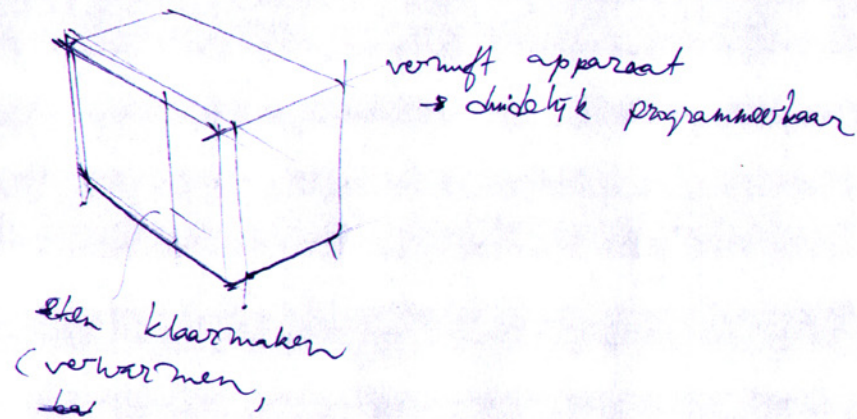 vernuft apparaat
→ duidelijk programmeerbaar
eten klaarmaken
(verwarmen,